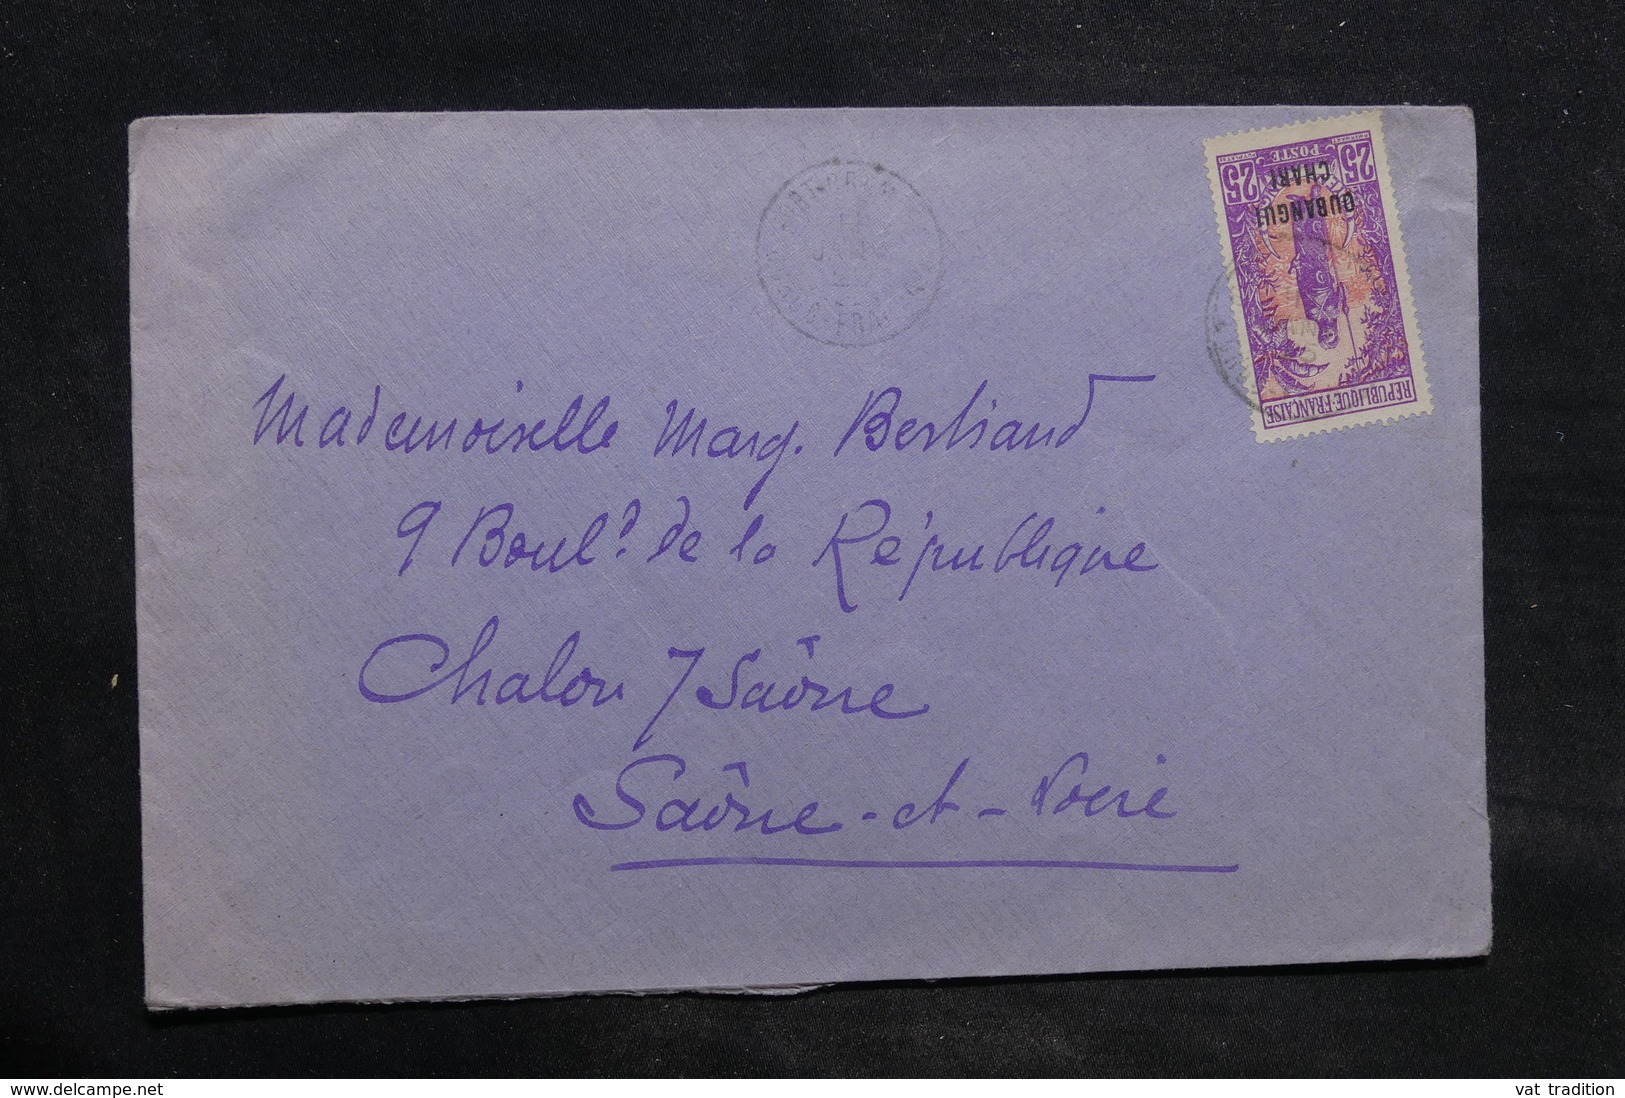 25 POSTE 25
OUBANGUI
CHARI
REPUBLIQUE·FRANÇAISE
Mademoiselle Marg. Bertrand
9 Boul.d de la République
Chalon s/ Saône
Saône-et-Loire
www.delcampe.net
vat tradition